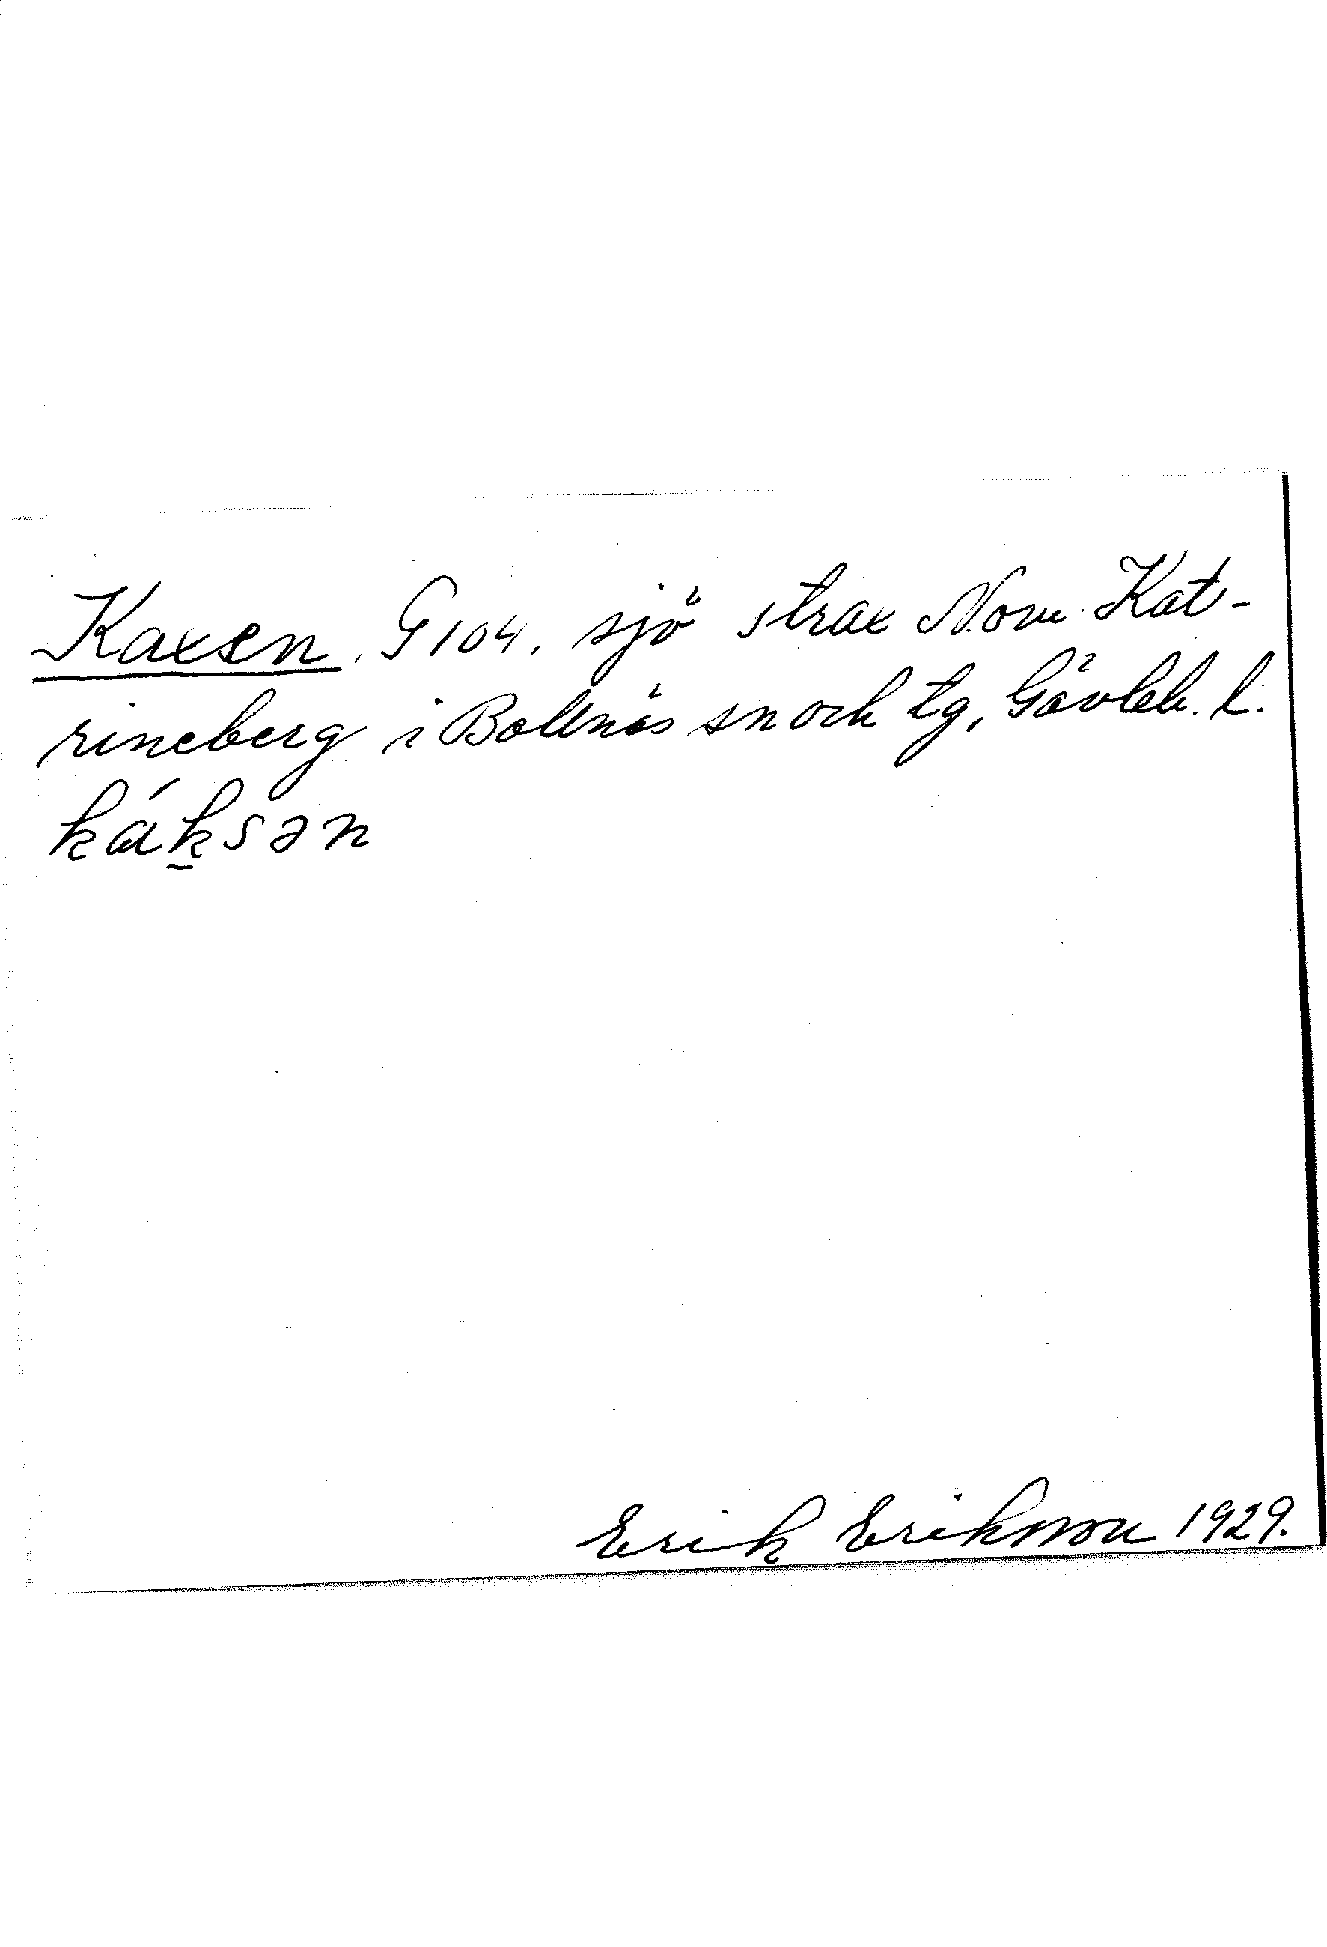 Kaxen, G 104, sjö strax N om Kat-
rineberg i Bollnäs sn och tg, Gävleb. l.
káksən
Erik Eriksson 1929.